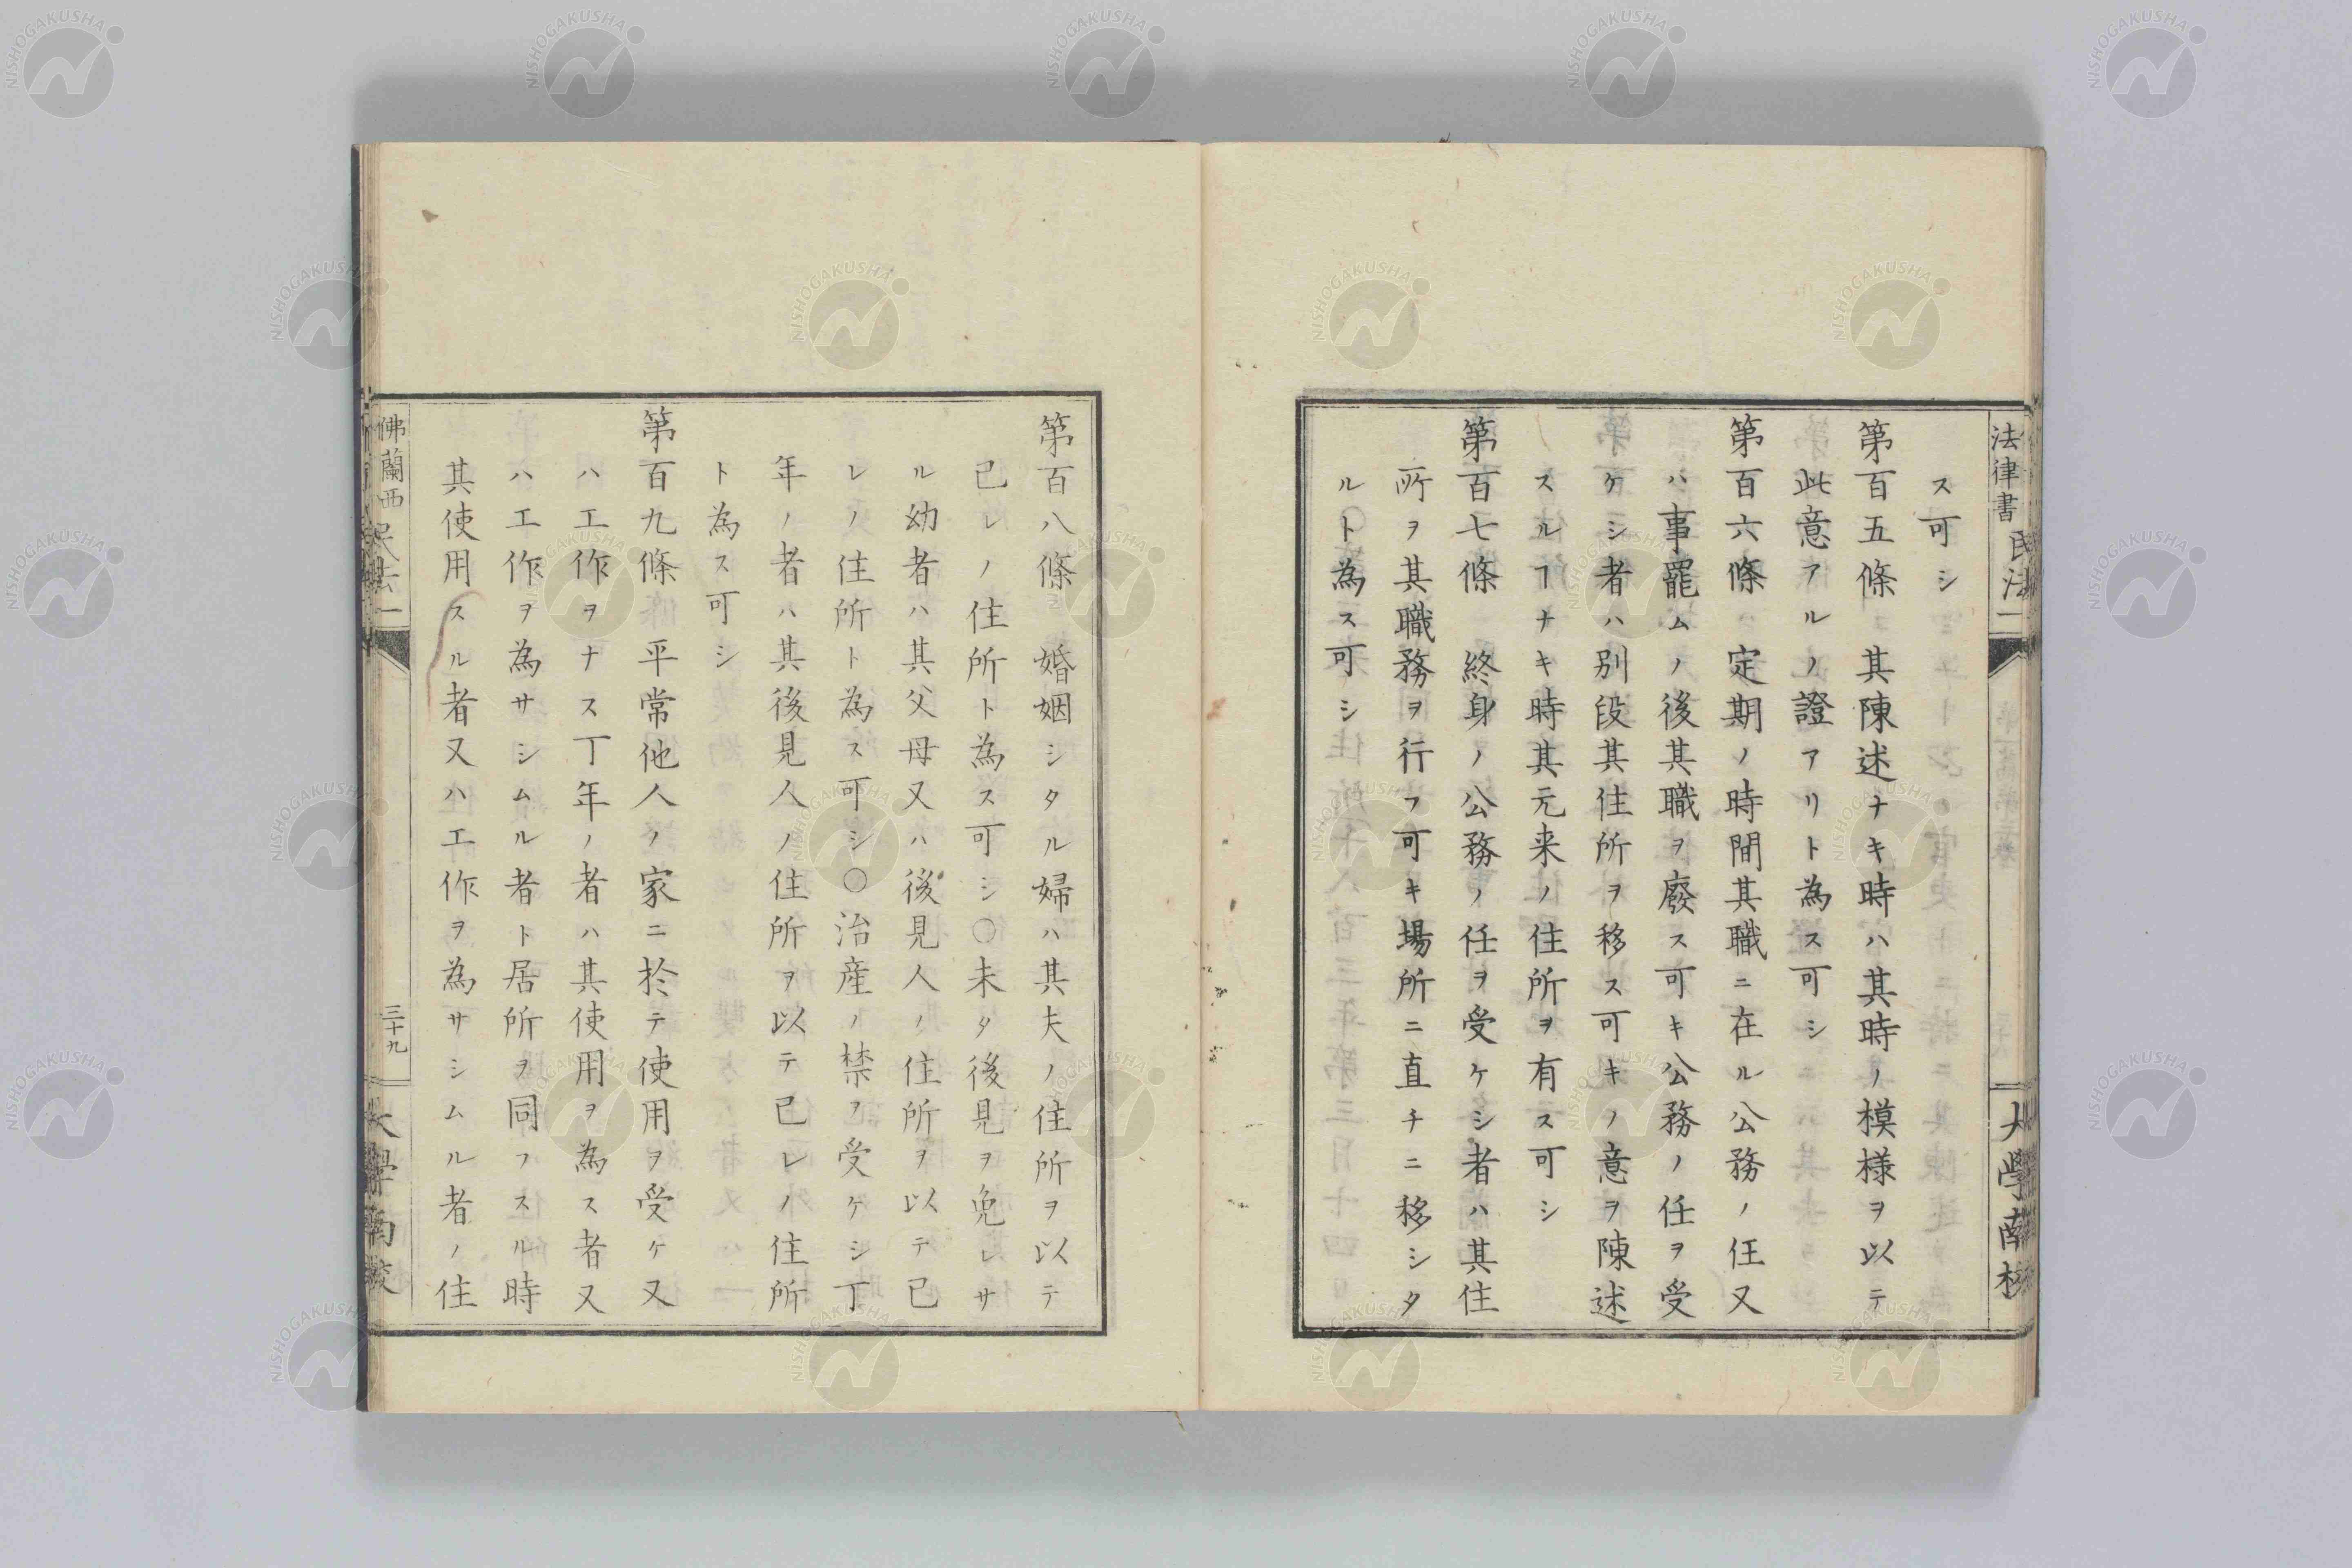 法律書 民法一
大學南校
ス可シ
第百五條 其陳述ナキ時ハ其時ノ模様ヲ以テ
此意アルノ證アリト為ス可シ
第百六條 定期ノ時間其職ニ在ル公務ノ任又
ハ事罷ムノ後其職ヲ廢ス可キ公務ノ任ヲ受
ケシ者ハ別段其住所ヲ移ス可キノ意ヲ陳述
スルヿナキ時其元来ノ住所ヲ有ス可シ
第百七條 終身ノ公務ノ任ヲ受ケシ者ハ其住
所ヲ其職務ヲ行フ可キ場所ニ直チニ移シタ
ルト為ス可シ
第百八條 婚姻シタル婦ハ其夫ノ住所ヲ以テ
已レノ住所ト為ス可シ○未タ後見ヲ免レサ
ル幼者ハ其父母又ハ後見人ノ住所ヲ以テ已
レノ住所ト為ス可シ○治産ノ禁ヲ受ケシ丁
年ノ者ハ其後見人ノ住所ヲ以テ已レノ住所
ト為ス可シ
第百九條 平常他人ノ家ニ於テ使用ヲ受ケ又
ハ工作ヲナス丁年ノ者ハ其使用ヲ為ス者又
ハ工作ヲ為サシムル者ト居所ヲ同フスル時
其使用スル者又ハ工作ヲ為サシムル者ノ住
佛蘭西 民法一
三十九
大學南校
NISHOGAKUSHA